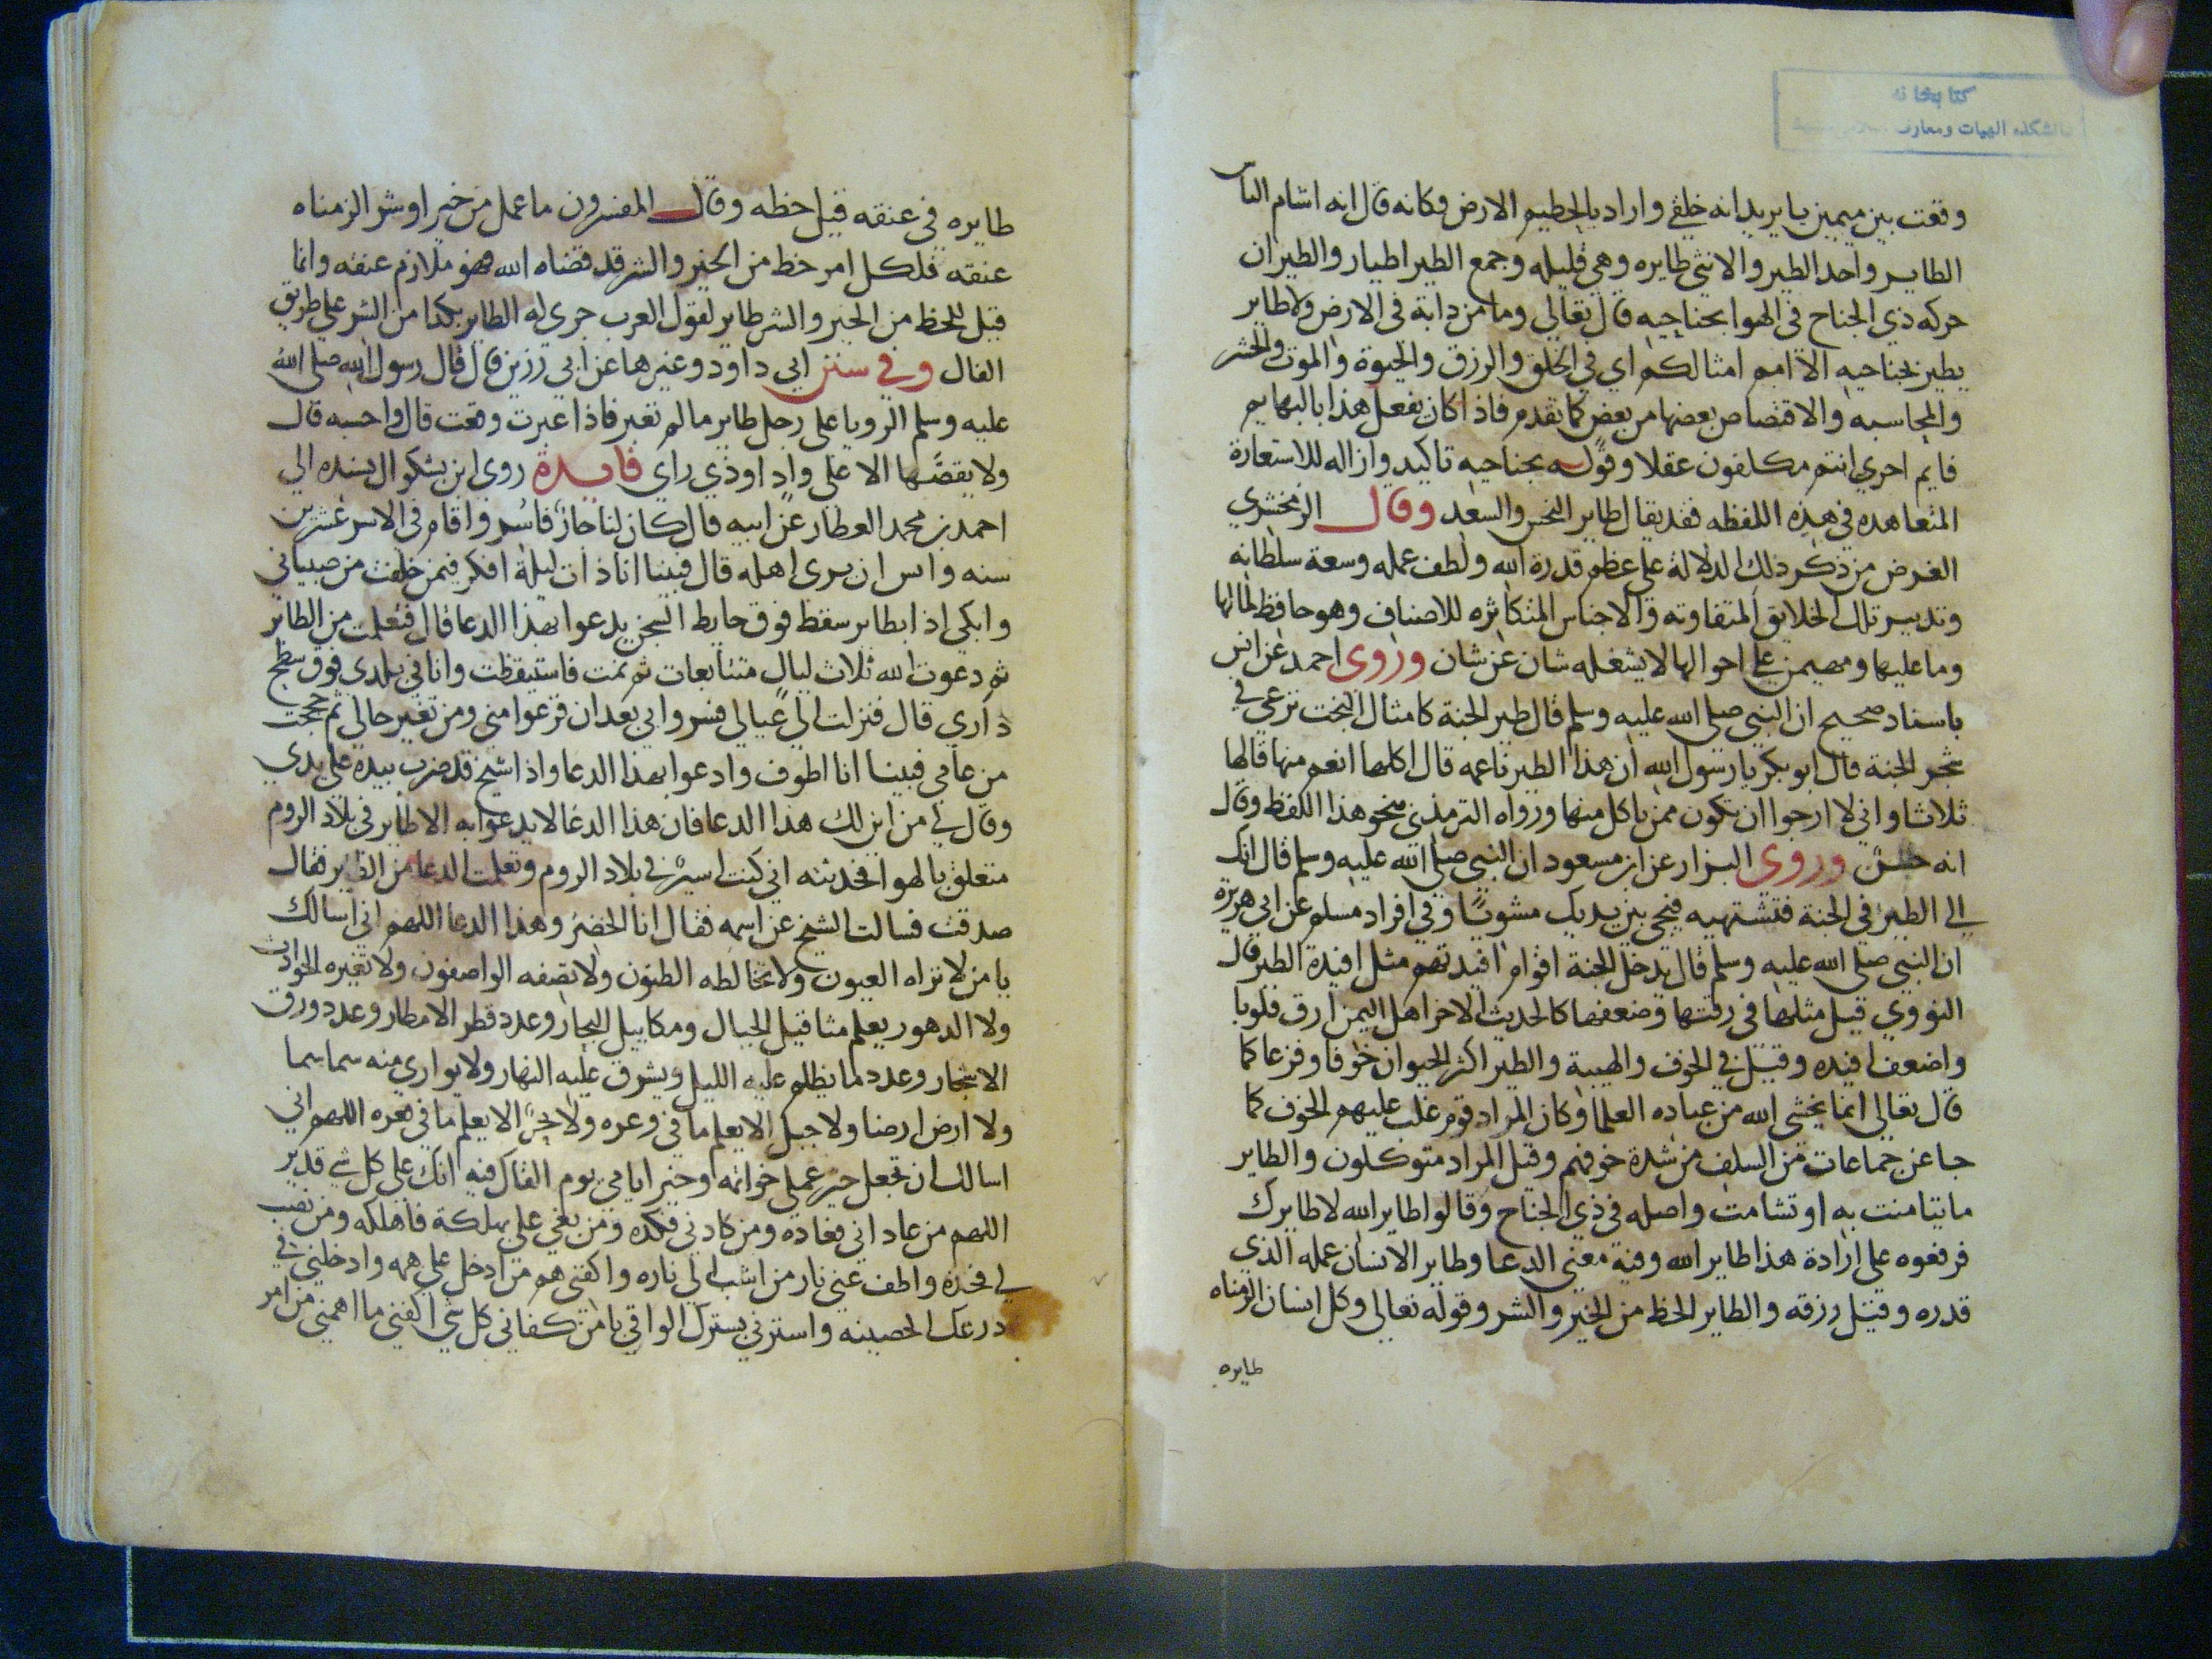 كتابخانه
دانشكده الهيات ومعارف اسلامى مشهد
وقعت بين ميمين يا يريد انه خلفي واراد بالحطيم الارض فكانه قال انه اشام الناس
الطاير واحد الطير والانثى طايره وهي قليله وجمع الطير اطيار والطيران
حركه ذي الجناح في الهوا بجناحيه قال تعالى وما من دابة في الارض ولا طاير
يطير بجناحيه الا امم امثالكم اي في الخلق والرزق والحيوة والموت والحشر
والمحاسبه والاقتصاص بعضها من بعض كما تقدم فاذا كان يفعل هذا بالبهايم
فايم احرى انتم مكلفون عقلا وقوله بجناحيه تاكيد وازاله للاستعارة
المتعاهده في هذه اللفظه فقد يقال طاير النحس والسعد وقال الزمخشري
الغرض من ذكر ذلك الدلالة على عظم قدرة الله ولطف عمله وسعة سلطانه
وتدبير تلك الخلايق المتفاوته والاجناس المتكاثره للاصناف وهو حافظ لمالها
وما عليها ومهيمن على احوالها لا يشغله شان عن شان وروى احمد عن انس
باسناد صحيح ان النبي صلى الله عليه وسلم قال طير الجنة كامثال البخت ترعى في
شجر الجنة قال ابو بكر يا رسول الله ان هذا الطير ناعمه قال اكلها انعم منها قالها
ثلاثا واني لا ارجوا ان تكون ممن ياكل منها ورواه الترمذي بنحو هذا اللفظ وقال
انه حسن وروى البزار عن ابن مسعود ان النبي صلى الله عليه وسلم قال انك
الى الطير في الجنة فتشتهيه فيجي بين يديك مشويا وفي افراد مسلم عن ابي هريرة
ان النبي صلى الله عليه وسلم قال يدخل الجنة اقوام افيدتهم مثل افيدة الطير قال
النووي قيل مثلها في رقتها وضعفها كالحديث الاخر اهل اليمن ارق قلوبا
واضعف افيده وقيل في الخوف والهيبة والطير اكثر الحيوان خوفا وفزعا كما
قال تعالى انما يخشى الله من عباده العلما وكان المراد قوم غلب عليهم الخوف كما
جا عن جماعات من السلف من شدة خوفهم وقيل المراد متوكلون والطاير
ما تيامنت به او تشامت واصله في ذي الجناح وقالوا طاير الله لا طايرك
فرفعوه على ارادة هذا طاير الله وفية معنى الدعا وطاير الانسان عمله الذي
قدره وقيل رزقه والطاير الحظ من الخير والشر وقوله تعالى وكل انسان الزمناه
طايره
طايره في عنقه قيل حظه وقال المفسرون ما عمل من خير او شر الزمناه
عنقه فلكل امر حظ من الخير والشر قد قضاه الله فهو ملازم عنقه وانما
قيل للحظ من الخير والشر طاير لقول العرب جرى له الطاير بكذا من الشر على طريق
الفال وفي سنن ابي داود وغيرها عن ابي رزين قال قال رسول الله صلى الله
عليه وسلم الرويا على رجل طاير ما لم تعبر فاذا عبرت وقعت قال واحسبه قال
ولا يقصها الا على واد او ذي راي فايدة روى ابن بشكوال بسنده الى
احمد بن محمد العطار عن ابيه قال كان لنا جار فاسر واقام في الاسر عشرين
سنه وايس ان يرى اهله قال فبينا انا ذات ليلة افكر فيمن خلفت من صبياني
وابكي اذا بطاير سقط فوق حايط السجن يدعوا بهذا الدعا قال فتعلمت من الطاير
ثم دعوت الله ثلاث ليال متتابعات ثم نمت فاستيقظت وانا في بلدي فوق سطح
داري قال فنزلت الى عيالي فسروا بي بعد ان فزعوا مني ومن تغير حالي ثم حججت
من عامي فبينا انا اطوف وادعوا بهذا الدعا واذا شيخ قد ضرب بيده على يدي
وقال لي من اين لك هذا الدعا فان هذا الدعا لا يدعوا به الا طاير في بلاد الروم
متعلق بالهوا فحدثته اني كنت اسيرا في بلاد الروم وتعلمت الدعا من الطير فقال
صدقت فسالت الشيخ عن اسمه فقال انا الخضر وهذا الدعا اللهم اني اسالك
يا من لا تراه العيون ولا تخالطه الظنون ولا يصفه الواصفون ولا تغيره الحوادث
ولا الدهور يعلم مثاقيل الجبال ومكاييل البحار وعدد قطر الامطار وعدد ورق
الاشجار وعدد ما يظلم عليه الليل ويشرق عليه النهار ولا يواري منه سما سما
ولا ارض ارضا ولا جبل الا يعلم ما في وعره ولا بحر الا يعلم ما في قعره اللهم اني
اسالك ان تجعل خير عملي خواتمه وخير ايامي يوم القاك فيه انك على كل شي قدير
اللهم من عاداني فعاده ومن كادني فكده ومن بغى علي بهلكة فاهلكه ومن نصب
لي فخذه واطف عني نار من اشب لي ناره واكفني هم من ادخل علي همه وادخلني في
درعك الحصينه واسترني بسترك الواقي يا من كفاني كل شي اكفني ما اهمني من امر